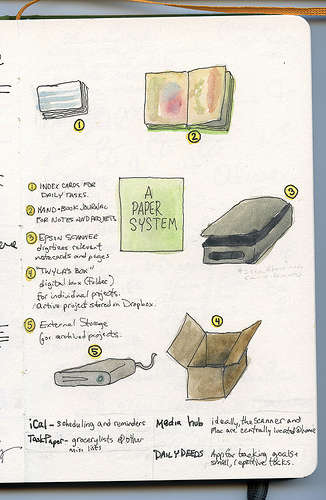 1
2
1 INDEX CARDS FOR
DAILY TASKS.
2 HAND-BOOK JOURNAL
FOR NOTES AND PROJECTS
3 EPSON SCANNER
digitizes relevent
notecards and pages
4 "TWYLA'S BOX"
digital box (folder)
for individual projects.
active project stored in Dropbox.
5 External Storage
for archived projects.
A
PAPER
SYSTEM
3
4
5
iCal - scheduling and reminders
TaskPaper - grocery lists & other
misc lists
Media hub ideally, the scanner and
Mac are centrally located @ home
DAILY DEEDS App for tracking goals +
small, repetitive tasks.